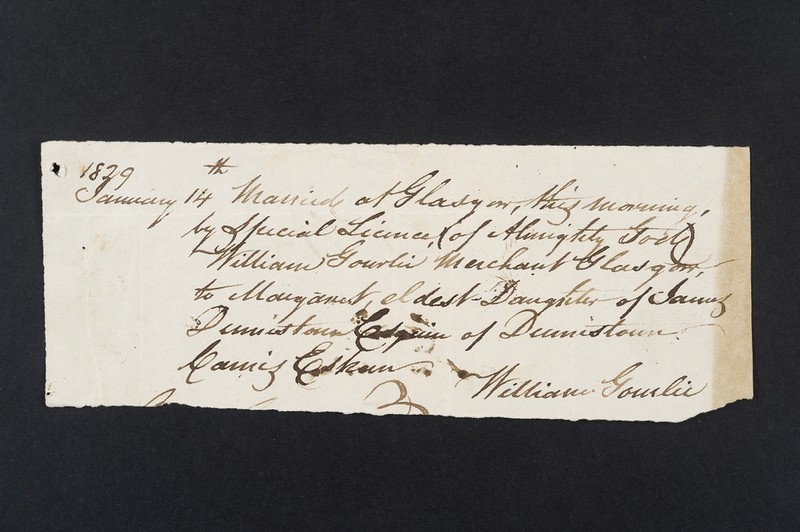 1829
January 14th Married at Glasgow, this morning,
by Special Licence, (of Almighty God)
William Gourlie Merchant Glasgow,
to Margaret, eldest Daughter of James
Dennistoun Esquire of Dennistoun.
Camis Eskan
William Gourlie